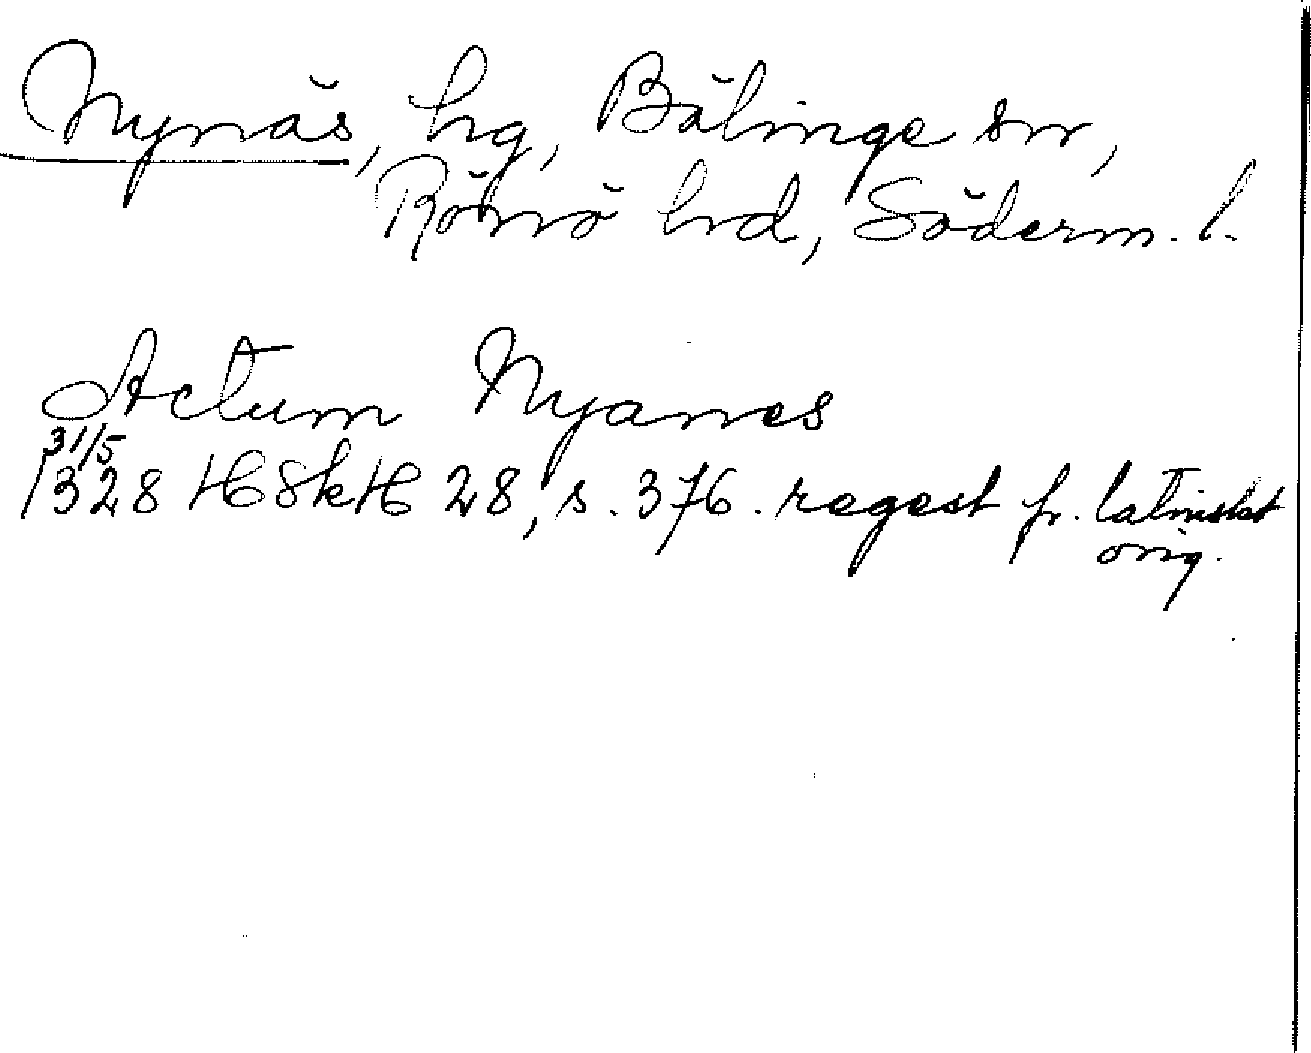 Nynäs, hg, Bälinge sn,
Rönö hd, Söderm. l.
Actum Nyanes
31/5
1328 HSkH 28, s. 376. regest fr. latinskt
orig.